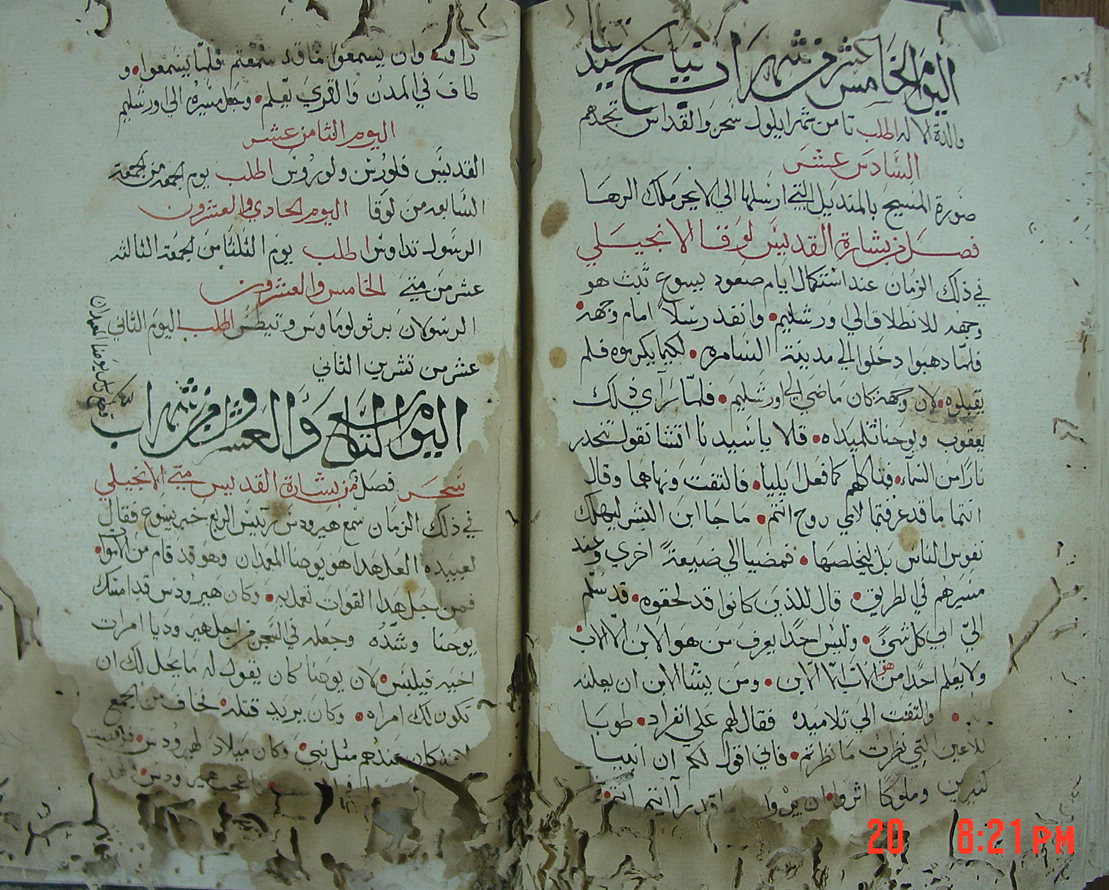 اليوم الخامس عشر من شهر اب نياح سيدتنا
والدة الاله اطلب ثامن شهر ايلول سحر والقداس تجدهم
السادس عشر
صورة المسيح بالمنديل التي ارسلها الي الابجر ملك الرها
فصل من بشارة القديس لوقا الانجيلي
في ذلك الزمان عند استكمال ايام صعود يسوع ثبت هو
وجهه للانطلاق الي اورشليم وانفد رسلا امام وجهه
فلما دهبوا دخلوا الي مدينة السامره لكيما يكرموه فلم
يقبلوه لان وجهه كان ماضي الي اورشليم فلما راي ذلك
يعقوب ويوحنا تلميداه قالا يا سيدنا اتشا نقول تنحدر
نار من السما فتاكلهم كما فعل ايليا فالتفت ونهاهما وقال
انتما ما قد عرفتما لاي روح انتم ما جا ابن البشر ليهلك
نفوس الناس بل ليخلصها فمضيا الي ضيعة اخري وعند
مسيرهم في الطريق قال للذين كانوا قد لحقوه قد سلم
الي ابي كل شي وليس احدا يعرف من هو الابن الا الاب
ولا يعلم احدا من هو الاب الا الابن ومن يشا الابن ان يعلنه
والتفت الي تلاميده فقال لهم علي انفراد طوبا
للاعين التي نظرت ما نظرتم فاني اقول لكم ان انبيا
كثيرين وملوكا اثروا ان يروا انتم
راوه وان يسمعوا ما قد سمعتم فلم يسمعوا و
طاف في المدن والقري يعلم وجعل مسيره الي اورشليم
اليوم الثامن عشر
القديس فلورس ولوروس اطلب يوم الجمعه من الجمعة
السابعه من لوقا اليوم الحادي والعشرون
الرسول تداوس اطلب يوم الثلثا من الجمعة الثالثه
عشر من متي الخامس والعشرون
الرسولان برثولوماوس وتيطس اطلب اليوم الثاني
عشر من تشرين الثاني
اليوم التاسع والعشرون من شهر اب
يوحنا المعمدان
سحر فصل من بشارة القديس متي الانجيلي
في ذلك الزمان سمع هيرودس رييس الربع خبر يسوع فقال
لعبيده العل هدا هو يوحنا المعمدان وهو قد قام من الاموات
فمن اجل هدا القوات تعمل به وكان هيرودس قد امسك
يوحنا وشده وجعله في السجن من اجل هيروديا امرات
اخيه فيلبس لان يوحنا كان يقول له ما يحل لك ان
تكون لك امراه وكان يريد قتله فخاف من الجمع
لانه كان عندهم مثل نبي وكان ميلاد لهيرودس فرقصت
هيرودس
20 8:21 PM